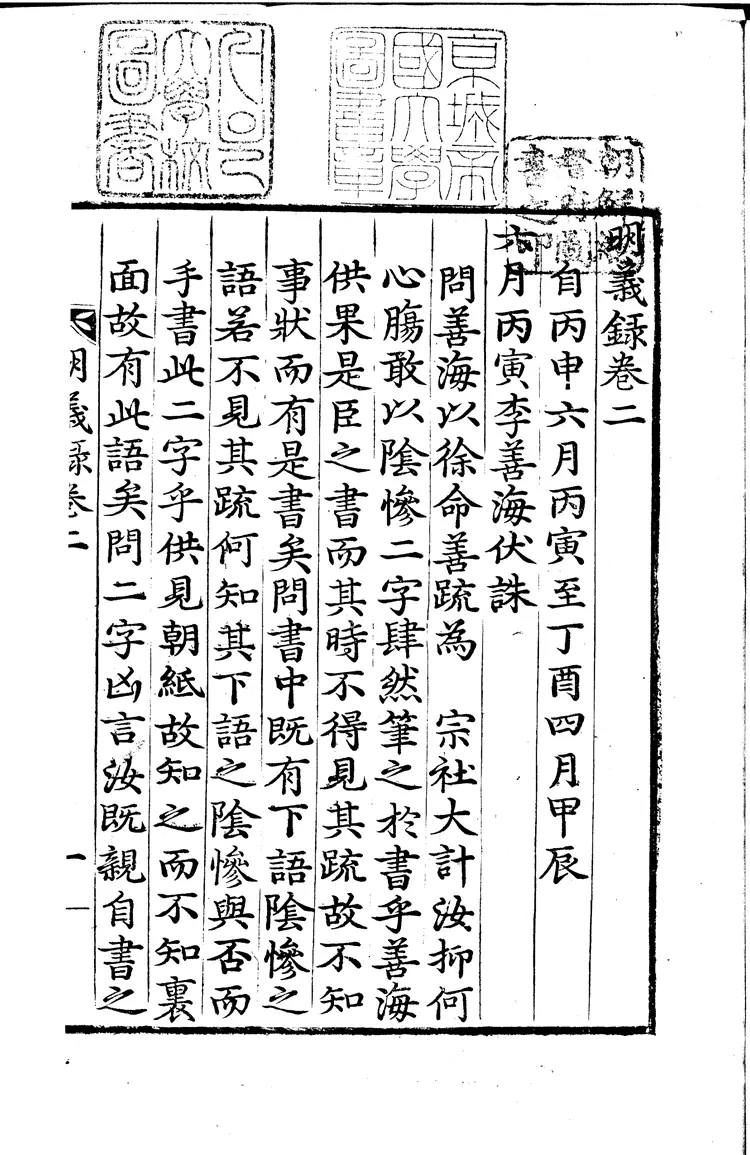 京城帝
國大學
圖書章
大學校
圖書
朝鮮總
督府圖
書之印
明義錄卷二
自丙申六月丙寅至丁酉四月甲辰
六月丙寅李善海伏誅
問善海以徐命善疏為　宗社大計汝抑何
心膓敢以陰慘二字肆然筆之於書乎善海
供果是臣之書而其時不得見其疏故不知
事狀而有是書矣問書中既有下語陰慘之
語若不見其疏何知其下語之陰慘與否而
手書此二字乎供見朝紙故知之而不知裏
面故有此語矣問二字凶言汝既親自書之
明義錄卷二
一